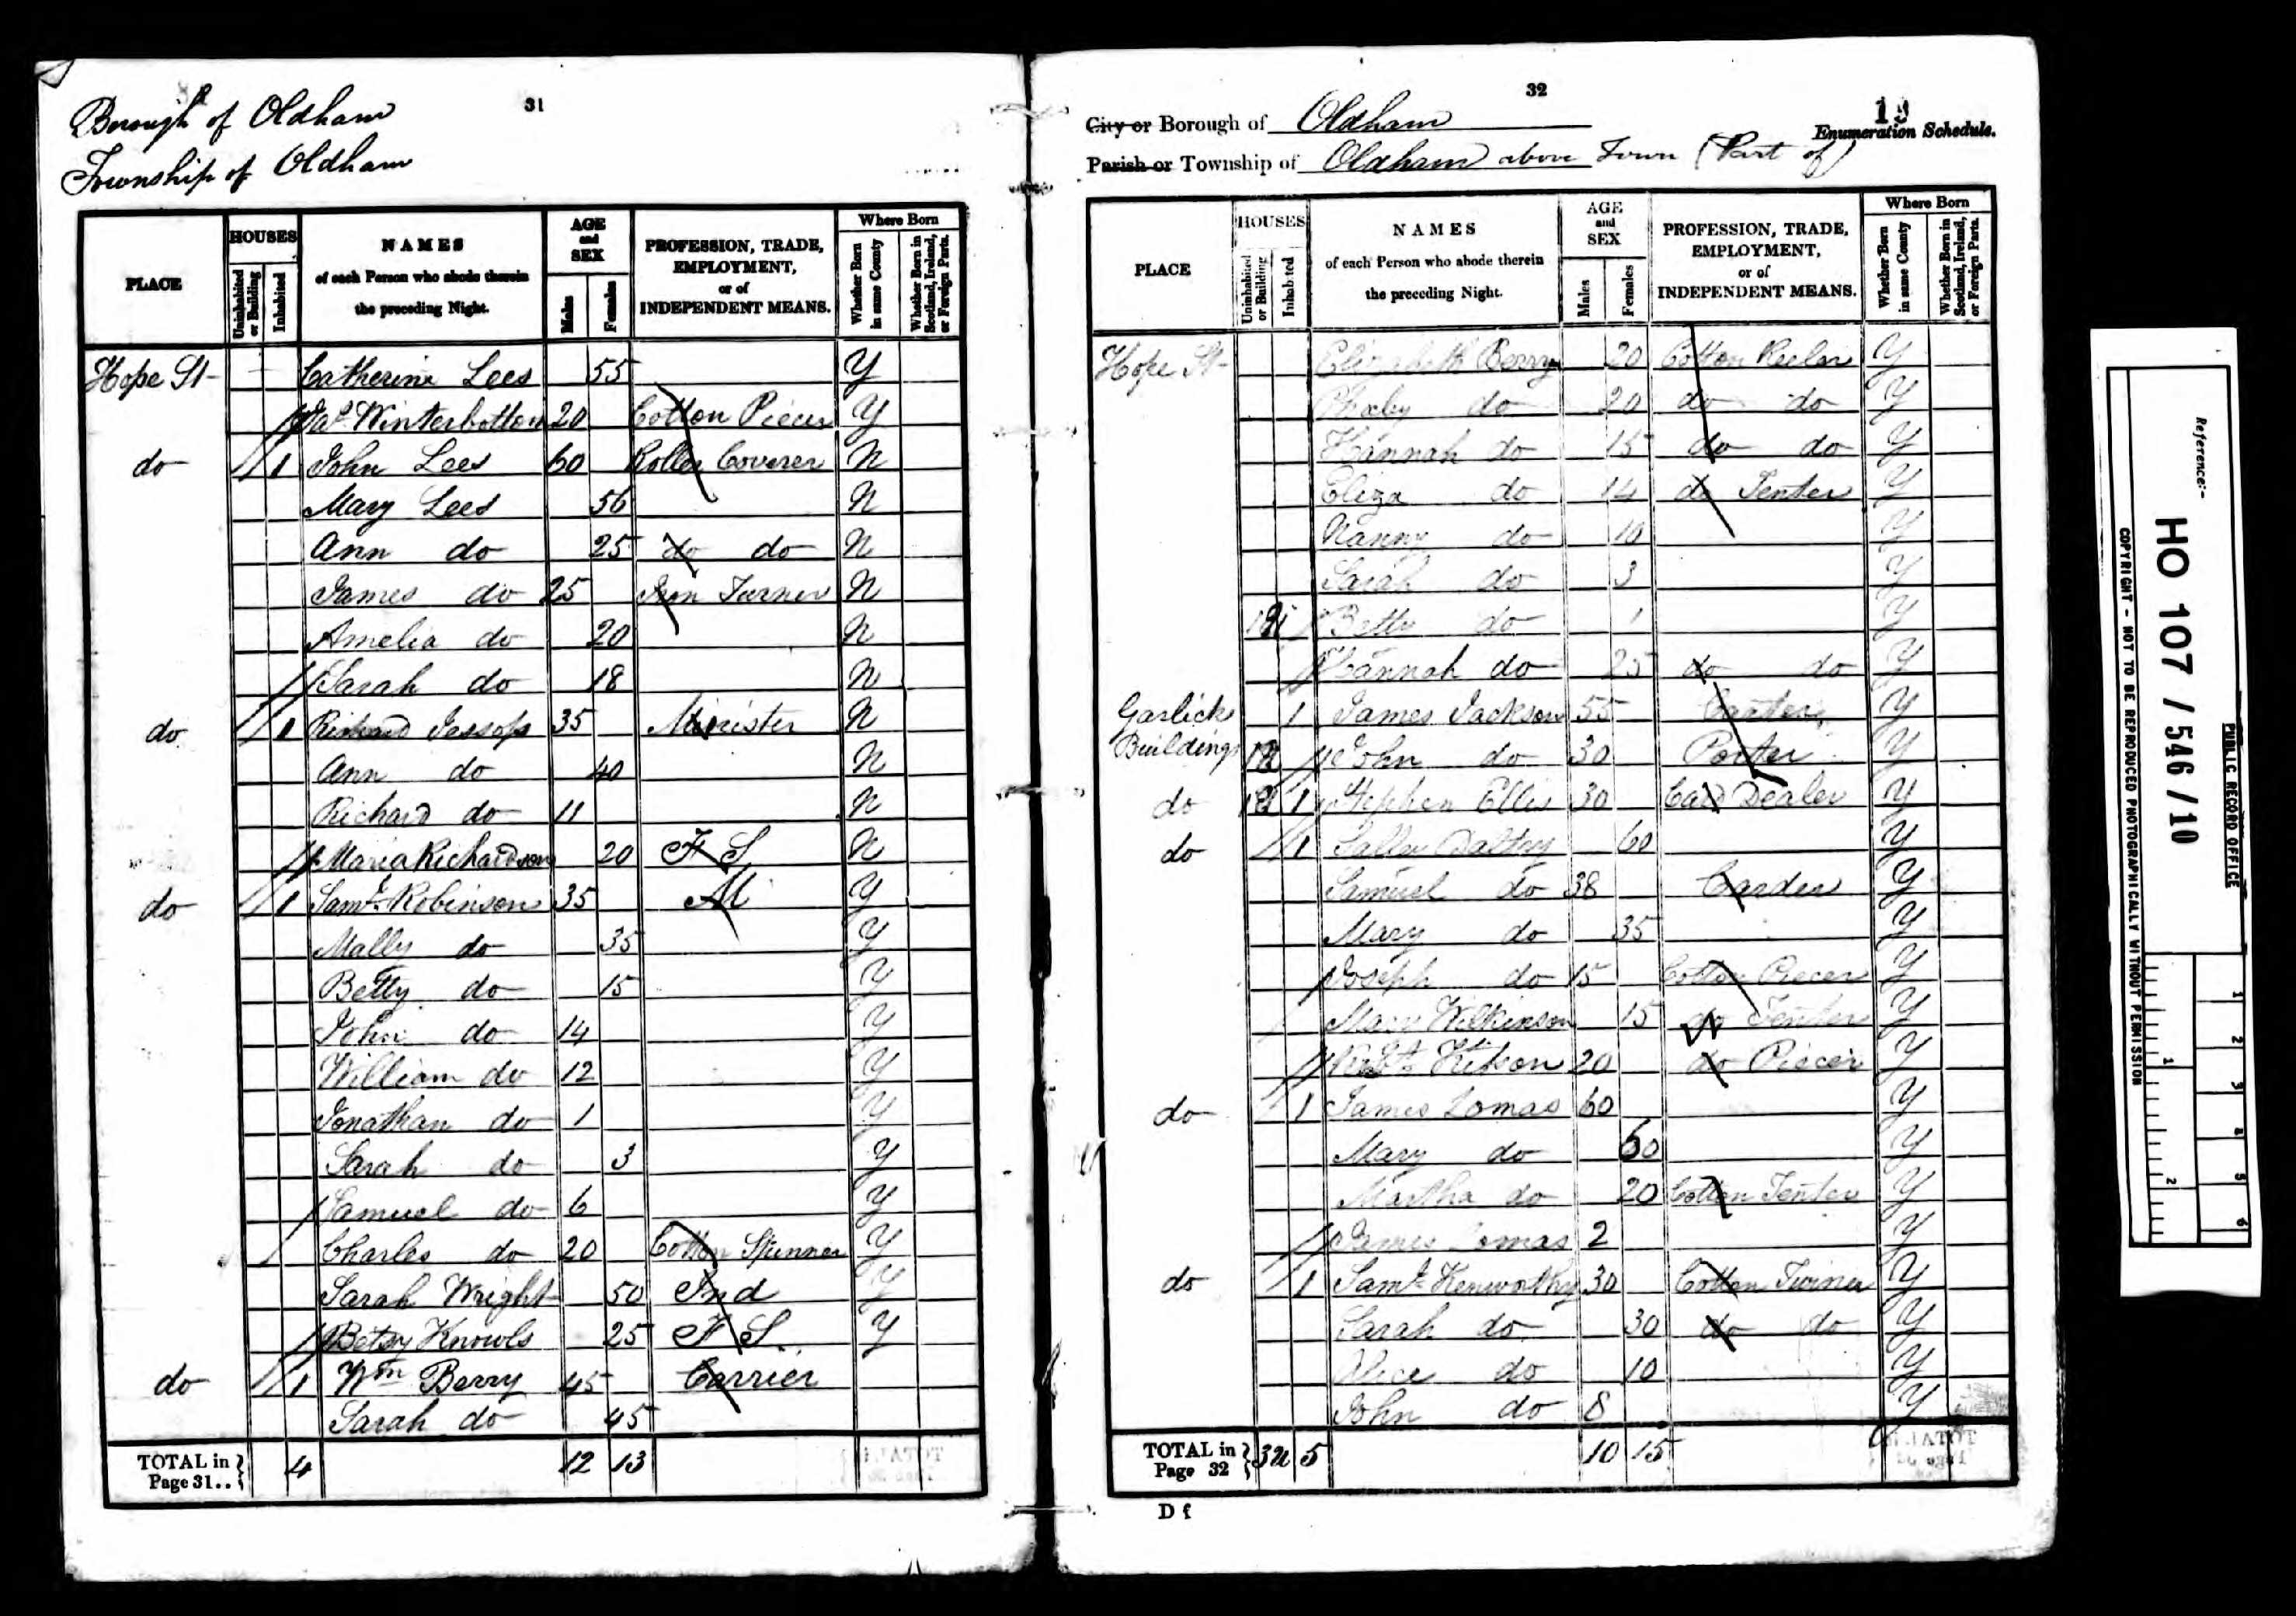 Borough of Oldham
31
Township of Oldham
PLACE
HOUSES
Uninhabited or Building
Inhabited
NAMES
of each Person who abode therein
the preceding Night.
AGE
and
SEX
Males
Females
PROFESSION, TRADE,
EMPLOYMENT,
or of
INDEPENDENT MEANS.
Where Born
Whether Born in same County
Whether Born in Scotland, Ireland, or Foreign Parts.
Hope St Catherine Lees 55 Y
Jas. Winterbottom 20 Cotton Piecer Y
do 1 John Lees 60 Roller Coverer N
Mary Lees 56 N
Ann do 25 do do N
James do 25 Iron Turner N
Amelia do 20 N
Sarah do 18 N
do 1 Richard Jessop 35 Minister N
Ann do 40 N
Richard do 11 N
Maria Richardson 20 F S N
do 1 Saml. Robinson 35 M Y
Mally do 35 Y
Betty do 15 Y
John do 14 Y
William do 12 Y
Jonathan do 1 Y
Sarah do 3 Y
Samuel do 6 Y
Charles do 20 Cotton Spinner Y
Sarah Wright 50 Ind Y
Betsy Knowls 25 F S. Y
do 1 Wm Berry 45 Carrier
Sarah do 45
TOTAL in
Page 31.. 4 12 13
32
City or Borough of Oldham
13
Enumeration Schedule.
Parish or Township of Oldham above Town (Part of)
PLACE
HOUSES
Uninhabited or Building
Inhabited
NAMES
of each Person who abode therein
the preceding Night.
AGE
and
SEX
Males
Females
PROFESSION, TRADE,
EMPLOYMENT,
or of
INDEPENDENT MEANS.
Where Born
Whether Born in same County
Whether Born in Scotland, Ireland, or Foreign Parts.
Hope St Elizabeth Berry 20 Cotton Reeler Y
do 20 do do Y
Hannah do 15 do do Y
Eliza do 14 do Tenter Y
Nanny do 10 Y
Sarah do 3 Y
Betty do 1 Y
Hannah do 25 do do Y
Garlick 1 James Jackson 55 Carter Y
Buildings John do 30 Porter Y
do 1 Stephen Ellis 30 Card Dealer Y
do 1 Sally Daltry 60 Y
Samuel do 38 Carder Y
Mary do 35 Y
Joseph do 15 Cotton Piecer Y
Mary Wilkinson 15 do Tenter Y
Kitson 20 do Piecer Y
do 1 James Lomas 60 Y
Mary do 60 Y
Martha do 20 Cotton Tenter Y
James Lomas 2 Y
do 1 Saml. Kenworthy 30 Cotton Twiner Y
Sarah do 30 do do Y
Alice do 10 Y
John do 8 Y
TOTAL in
Page 32 5 10 15
D f
Reference:-
HO 107 / 546 / 10
PUBLIC RECORD OFFICE
COPYRIGHT - NOT TO BE REPRODUCED PHOTOGRAPHICALLY WITHOUT PERMISSION
1
2